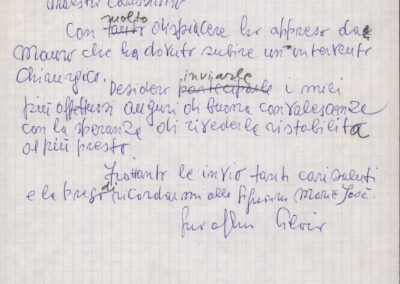 Maestro Carissimo
molto
Con tanto dispiacere ho appreso da
Mauro che ha dovuto subire un intervento
Chirurgico.
inviarle
Desidero partecipare i miei
più affettuosi auguri di buona convalescenza
con la speranza di rivederla ristabilita
al più presto
Frattanto le invio tanti cari saluti
di
e la prego ricordarmi alla Signora Marie José.